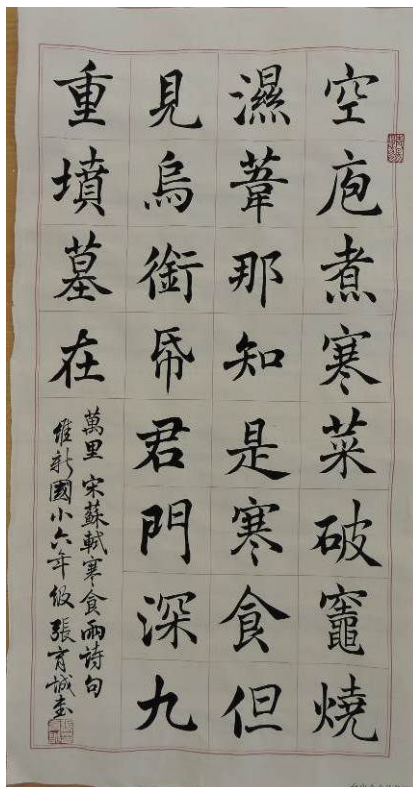 空庖煮寒菜破竈燒
濕葦那知是寒食但
見烏銜帋君門深九
重墳墓在
萬里 宋蘇軾寒食雨詩句
維新國小六年級張育城書